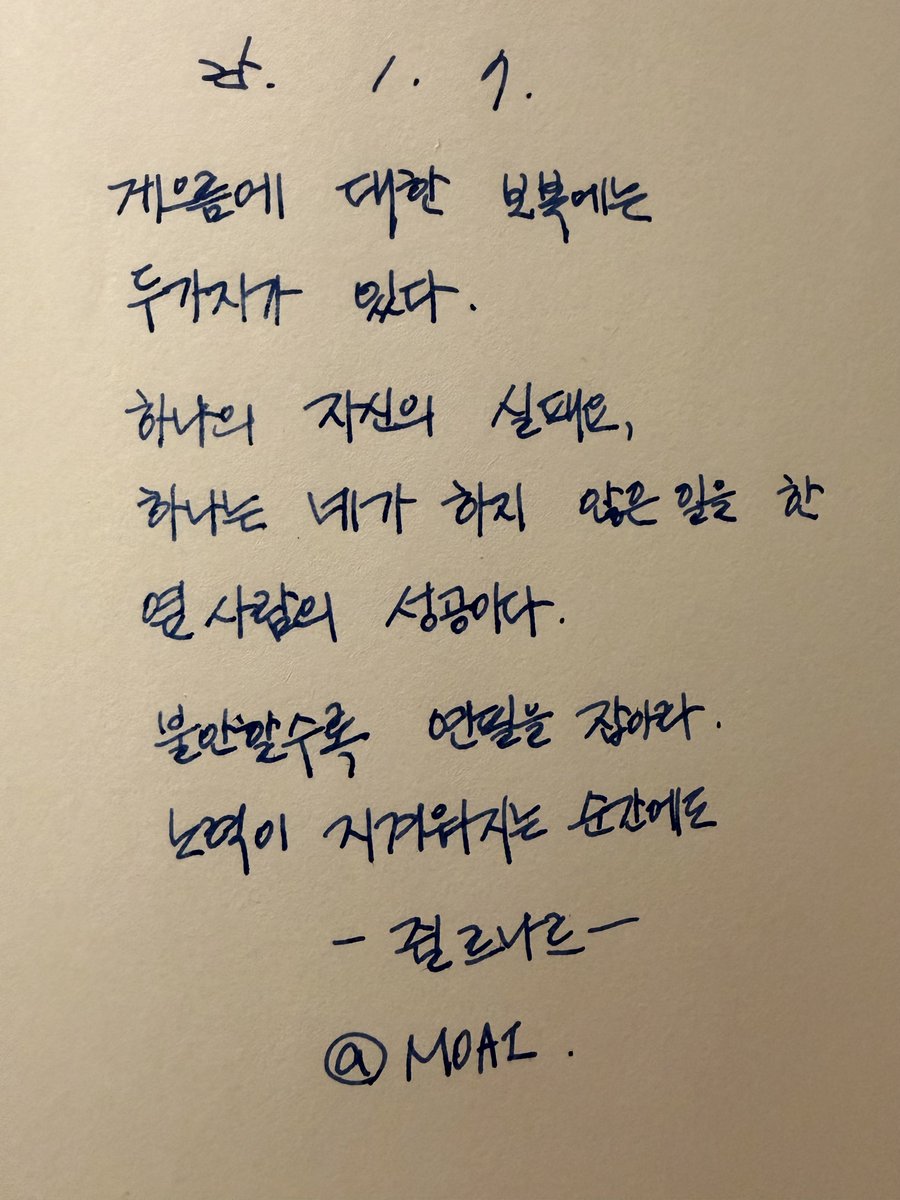 25. 1. 7.
게으름에 대한 보복에는
두가지가 있다.
하나의 자신의 실패요,
하나는 네가 하지 않은 일을 한
옆 사람의 성공이다.
불안할수록 연필을 잡아라.
노력이 지겨워지는 순간에도
- 쥘르나르 -
@MOAI.